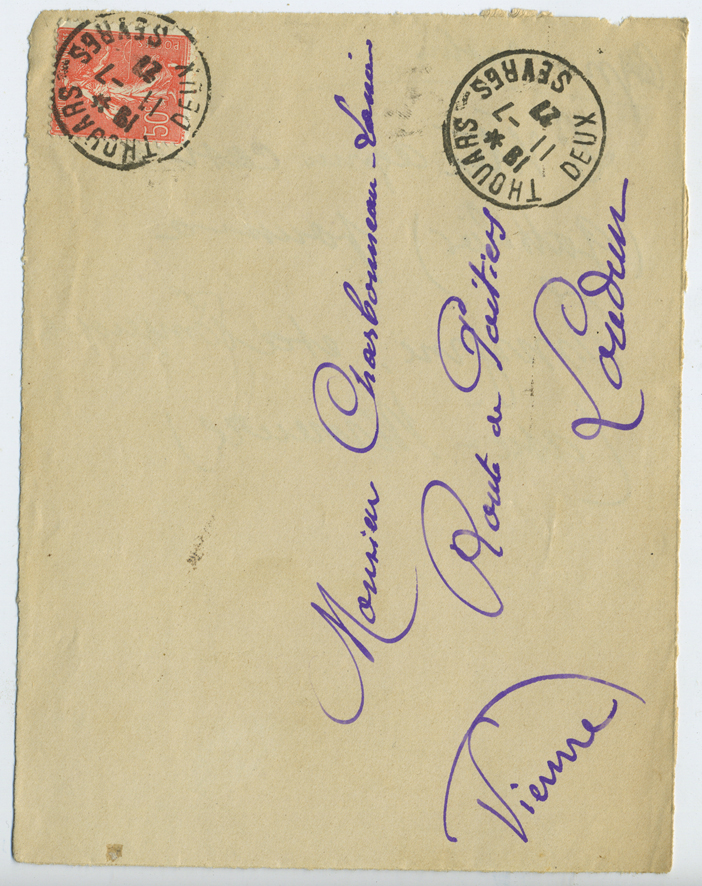 Monsieur Charbonneau-Louis
Route de Poitiers
Loudun
Vienne
THOUARS DEUX SEVRES
18 *
11 - 7
27
THOUARS DEUX SEVRES
18 *
11 - 7
50c